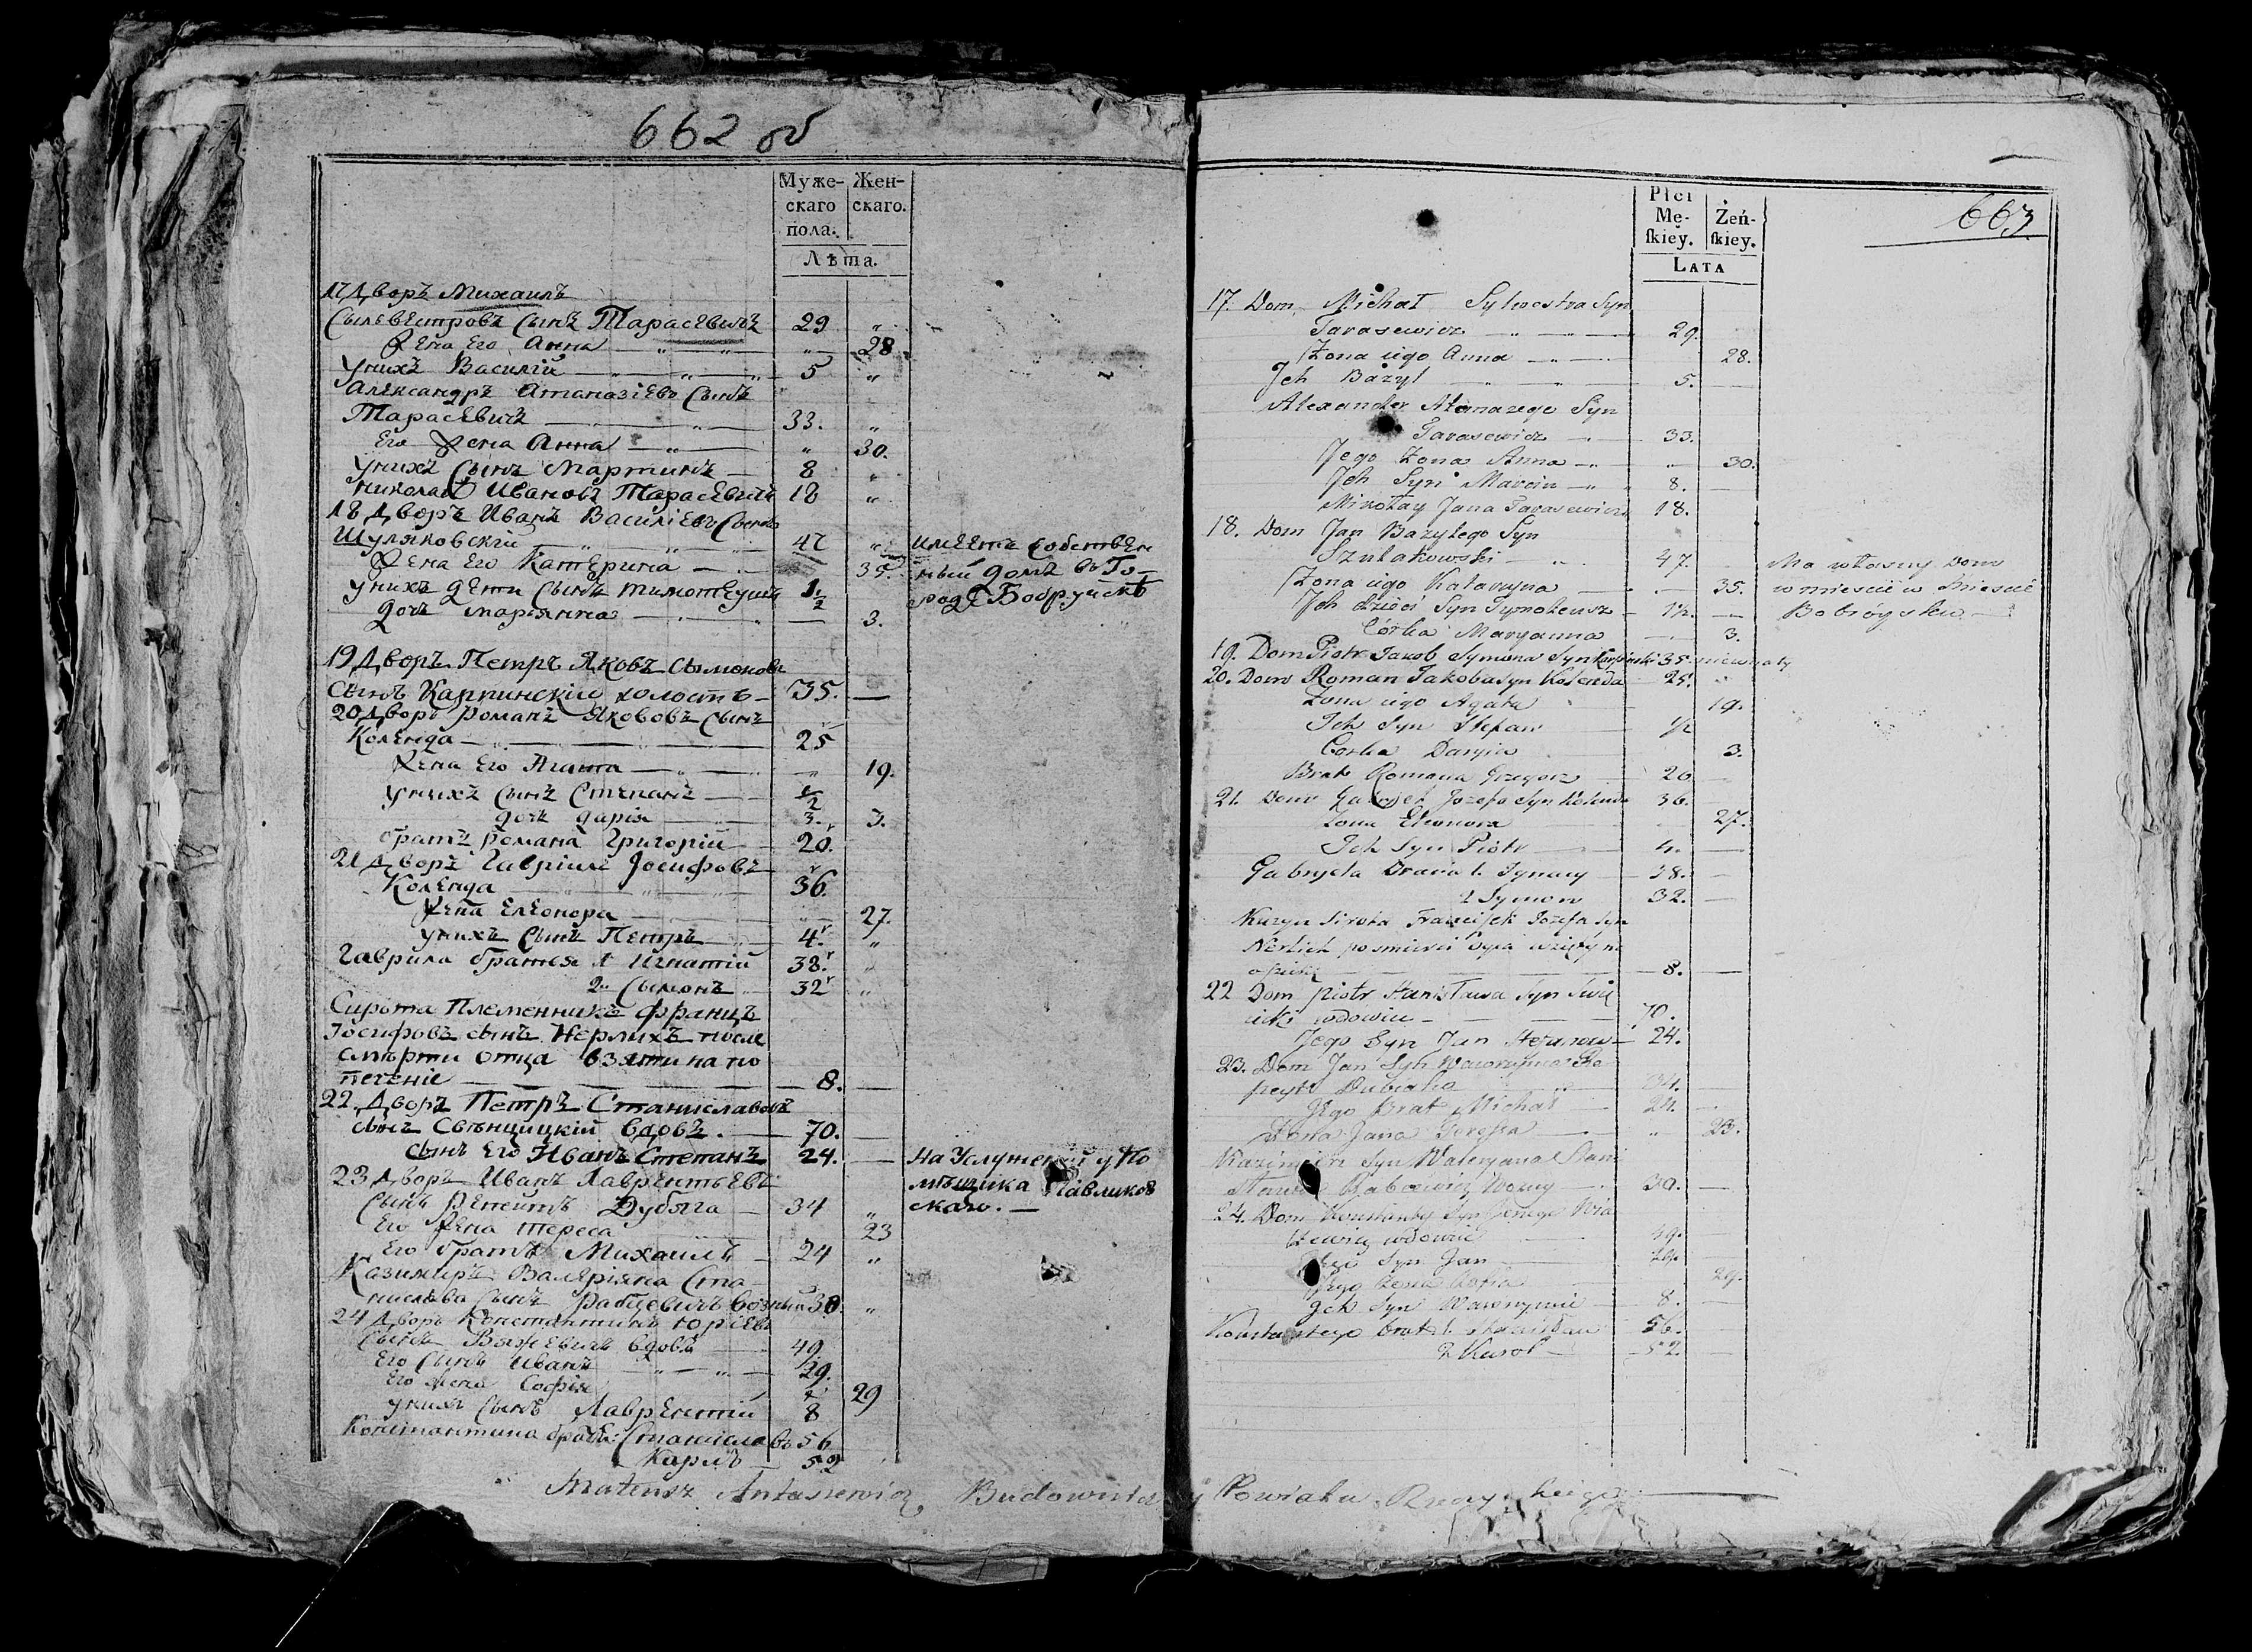 662 об
Муже-
скаго
пола.
Жен-
скаго.
Лѣта.
17 Дворъ Михаилъ
Сыльвестровъ Сынъ Тарасевичъ 29 „
Жена Его Анна „ „ „ 28
У нихъ Василій „ „ „ 5 „
Александръ Атаназіевъ Сынъ
Тарасевичъ „ 33. „
Его Жена Анна „ „ 30.
У нихъ Сынъ Мартинъ 8 „
Николай Ивановъ Тарасевичъ 18 „
18 Дворъ Иванъ Василіевъ Сынъ
Шуляковскій „ „ 47 „ имѣетъ собствен
Жена Его Катерина 35. ный домъ въ Го-
У нихъ дети Сынъ Тимотеушъ 1½ родѣ Бобруйскѣ
дочь Маріянна — 3.
19 Дворъ Петръ Яковъ Сымоновъ
Сынъ Карпинскій холостъ 35. —
20 Дворъ Романъ Якововъ Сынъ
Коленда 25
Жена Его Агата „ 19.
У нихъ Сынъ Степанъ ½
дочь Дарія 3. 3.
братъ Романа Григорій 20.
21 Дворъ Гавріилъ Іосифовъ
Коленда 36.
Жена Елеонора 27.
У нихъ Сынъ Петръ 4. „
Гаврила братья 1 Игнатій 38. „
2 Сымонъ 32 „
Сирота Племенникъ Францъ
Іосифовъ сынъ Нерлихъ после
смерти отца взяти на по
печеніе — 8. —
22 Дворъ Петръ Станиславовъ
сынъ Свѣнцицкій вдовъ. 70. —
сынъ Его Иванъ Степанъ 24. — На Услуженіи у По
23 Дворъ Иванъ Лаврентьевъ мѣщика Павликов
Сынъ Дубяга 34 „ скаго. —
Его Жена Тереса 23
Его братъ Михаилъ 24 „
Казимиръ Валеріяна Ста
нислава Сынъ Рабцевичъ возный 30. „
24 Дворъ Константинъ Юріевъ
Сынъ Вяжевичъ вдовъ 49
Его Сынъ Иванъ „ „ 29.
Его жена Софія 29
У нихъ Сынъ Лаврентій 8
Константина братья: Станиславъ 56
Карлъ 52
Mateusz Antasiewicz Budowniczy Powiatu
663
Płci
Mę-
ſkiéy.
Żeń-
ſkiey.
LATA
17. Dom, Michał Sylwestra Syn
Tarasewicz 29.
Żona iego Anna 28.
Jch Bazyl 5.
Alexander Atanazego Syn
Tarasewicz 33.
Jego żona Anna 30.
Jch Syn Marcin 8.
Mikołay Jana Tarasewicz 18.
18. Dom Jan Bazylego Syn
Szulakowski 47. Ma własny Dom
Żona iego Katarzyna 35. w mieście w Mieście
Jch dzieci Syn Tymoteusz 1½. Bobróysku
Córka Maryanna 3.
19. Dom Piotr Jakob Symona Syn Karpiński 35 nieżonaty
20. Dom Roman Jakoba Syn Kolenda 25. „
Żona iego Agata 19.
Jch Syn Stefan ½
Corka Daryia 3.
Brat Romana Grzegorz 20
21. Dom Gabryel Jozefa Syn Kolenda 36.
Żona Eleonora 27.
Jch Syn Piotr 4.
Gabryela Bracia 1. Jgnacy 38.
2 Symon 32.
Kuzyn Sirota Franciſzek Jozefa Syn
Nerlich po smierci Oyca wzięty na
opiekę 8.
22 Dom piotr Stanisława Syn Swię
cicki wdowiec 70.
Jego Syn Jan Stefan 24.
23. Dom Jan Syn Wawrzynca
Dubiaha 34.
Jego Brat Michał 24.
Żona Jana Teressa „ 23.
Kazimierz Syn Waleryana Stani
sława Rabcewicz Wozny 30.
24. Dom Konstanty Syn Jerzego Wia
żewicz wdowiec 49.
Jego Syn Jan 29.
Jego żona Zofia 29.
Jch Syn Wawrzyniec 8.
Konstantego brat 1. Stanisław 56.
2 Karol 52.